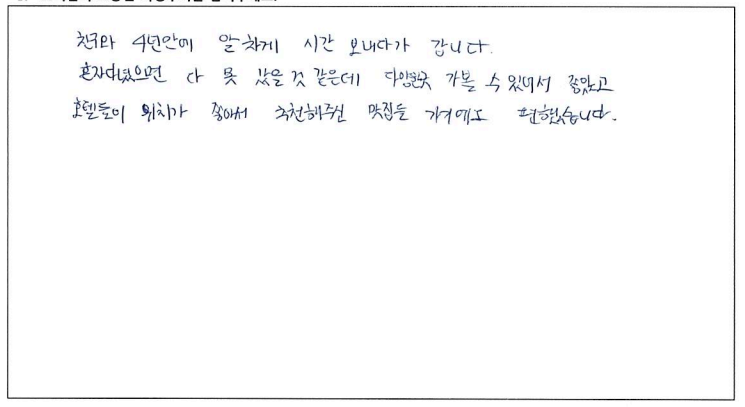 친구와 4년만에 알차게 시간 보내다가 갑니다.
혼자다녔으면 다 못 갔을것 같은데 다양한곳 가볼 수 있어서 좋았고
호텔들이 위치가 좋아서 추천해주신 맛집들 가기에도 편했습니다.